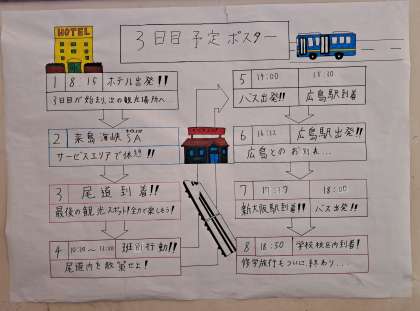 HOTEL
3日目予定ポスター
1 8:15 ホテル出発!!
3日目が始まり!次の観光場所へ
2 来島海峡SA
サービスエリアで休憩!!
3 尾道到着!!
最後の観光スポット!全力で楽しもう!
4 班別行動!!
尾道内を散策せよ!
5 14:00 15:10
バス出発!! 広島駅到着
6 16:12 広島駅出発!!
広島とのお別れ...
7 17:19 18:00
新大阪駅到着!! バス出発!!
8 18:50 学校校区内到着!
修学旅行もついに終わり...